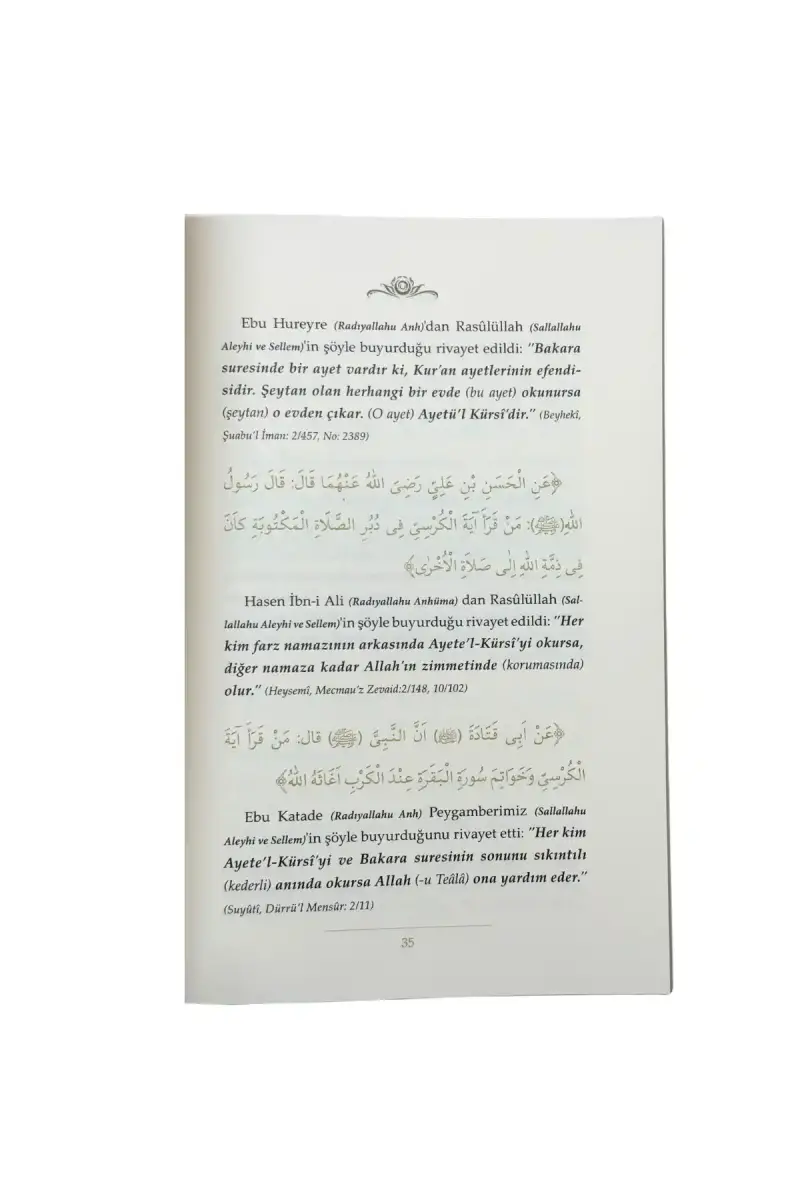 Ebu Hureyre (Radıyallahu Anh)'dan Rasûlüllah (Sallallahu
Aleyhi ve Sellem)'in şöyle buyurduğu rivayet edildi: "Bakara
suresinde bir ayet vardır ki, Kur'an ayetlerinin efendi-
sidir. Şeytan olan herhangi bir evde (bu ayet) okunursa
(şeytan) o evden çıkar. (O ayet) Ayetü'l Kürsî'dir." (Beyhekî,
Şuabu'l İman: 2/457, No: 2389)
﴿عَنِ الْحَسَنِ بْنِ عَلِيٍّ رَضِيَ اللّٰهُ عَنْهُمَا قَالَ: قَالَ رَسُولُ
اللّٰهِ(ﷺ): مَنْ قَرَأَ آيَةَ الْكُرْسِيِّ فِى دُبُرِ الصَّلَاةِ الْمَكْتُوبَةِ كَانَ
فِى ذِمَّةِ اللّٰهِ إِلٰى صَلَاةِ الْأُخْرٰى﴾
Hasen İbn-i Ali (Radıyallahu Anhüma) dan Rasûlüllah (Sal-
lallahu Aleyhi ve Sellem)'in şöyle buyurduğu rivayet edildi: "Her
kim farz namazının arkasında Ayete'l-Kürsî'yi okursa,
diğer namaza kadar Allah'ın zimmetinde (korumasında)
olur." (Heysemî, Mecmau'z Zevaid:2/148, 10/102)
﴿عَنْ اَبِى قَتَادَةَ (ﷺ) اَنَّ النَّبِيَّ (ﷺ) قال: مَنْ قَرَأَ آيَةَ
الْكُرْسِيِّ وَخَوَاتِمَ سُورَةِ الْبَقَرَةِ عِنْدَ الْكَرْبِ اَغَاثَهُ اللّٰهُ﴾
Ebu Katade (Radıyallahu Anh) Peygamberimiz (Sallallahu
Aleyhi ve Sellem)'in şöyle buyurduğunu rivayet etti: "Her kim
Ayete'l-Kürsî'yi ve Bakara suresinin sonunu sıkıntılı
(kederli) anında okursa Allah (-u Teâlâ) ona yardım eder."
(Suyûtî, Dürrü'l Mensûr: 2/11)
35